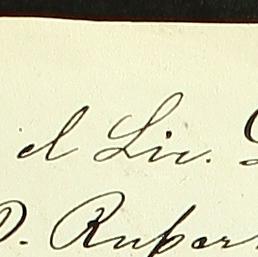 el Lic.
D. Ruper